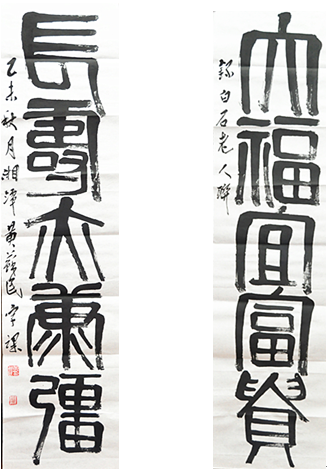 大福宜富貴
錄白石老人聯
長壽亦康彊
乙未秋月湘潭黃蘇民